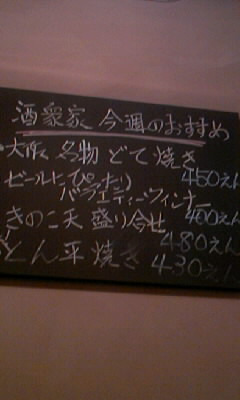 酒衆家 今週のおすすめ
・大阪 名物 どて焼き
450えん
ビールにぴったり
バラエティーウィンナー
400えん
きのこ天盛り合せ
480えん
とん平焼き 430えん